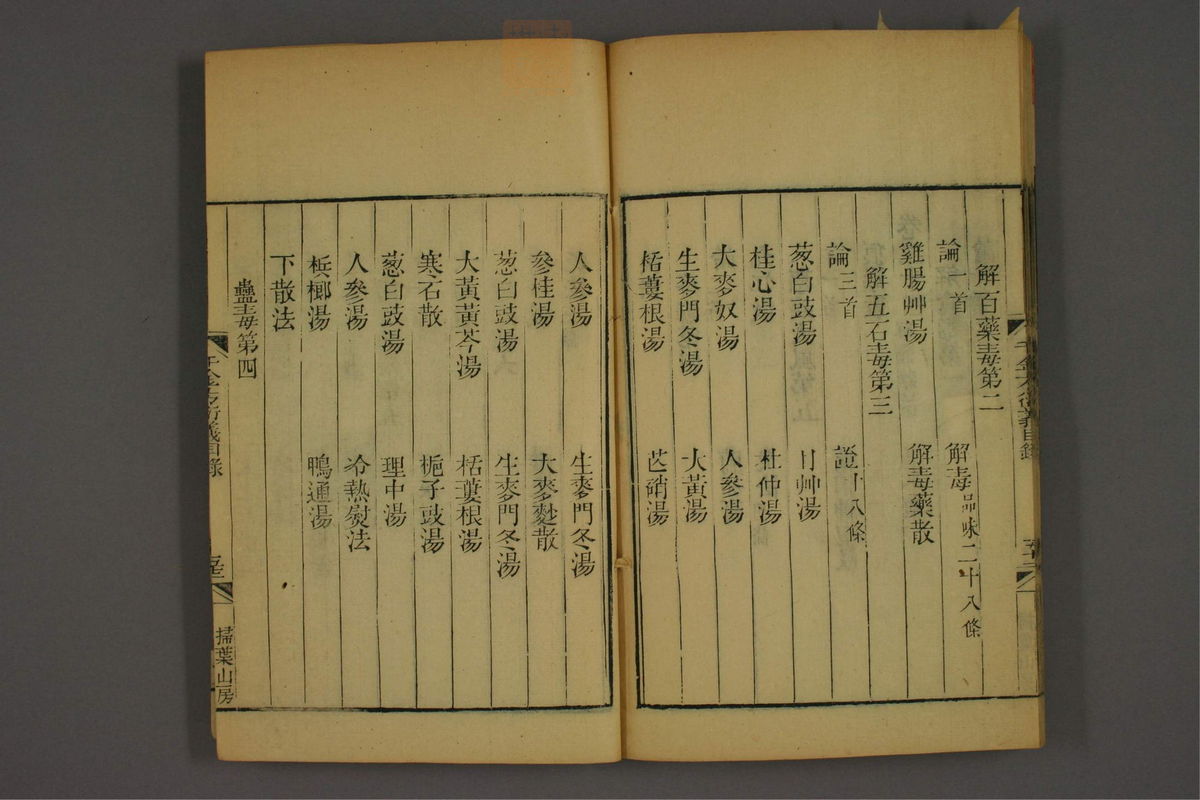 解百藥毒第二
論一首 解毒品味二十八條
雞腸艸湯 解毒藥散
解五石毒第三
論三首 證十八條
葱白豉湯 甘艸湯
桂心湯 杜仲湯
大麥奴湯 人參湯
生麥門冬湯 大黃湯
栝蔞根湯 芒硝湯
人參湯 生麥門冬湯
參桂湯 大麥麨散
葱白豉湯 生麥門冬湯
大黃黃芩湯 栝蔞根湯
寒石散 梔子豉湯
葱白豉湯 理中湯
人參湯 冷熱熨法
檳榔湯 鴨通湯
下散法
蠱毒第四
千金方衍義目錄
掃葉山房